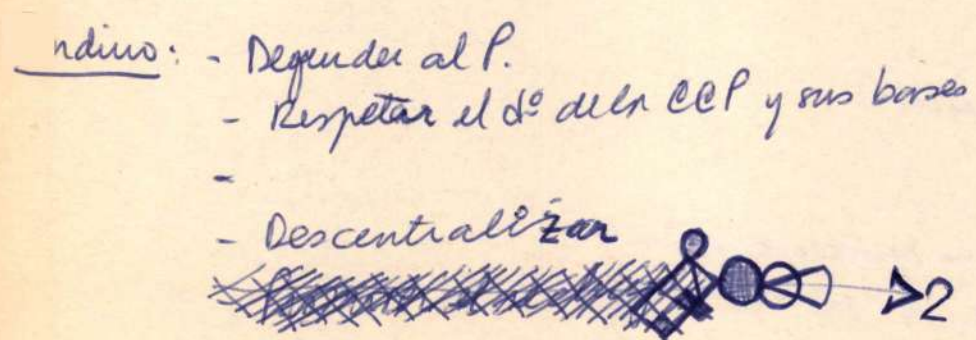 ndino: - Defender al P.
- Respetar el dº de la CCP y sus bases
-
- Descentralizar
2